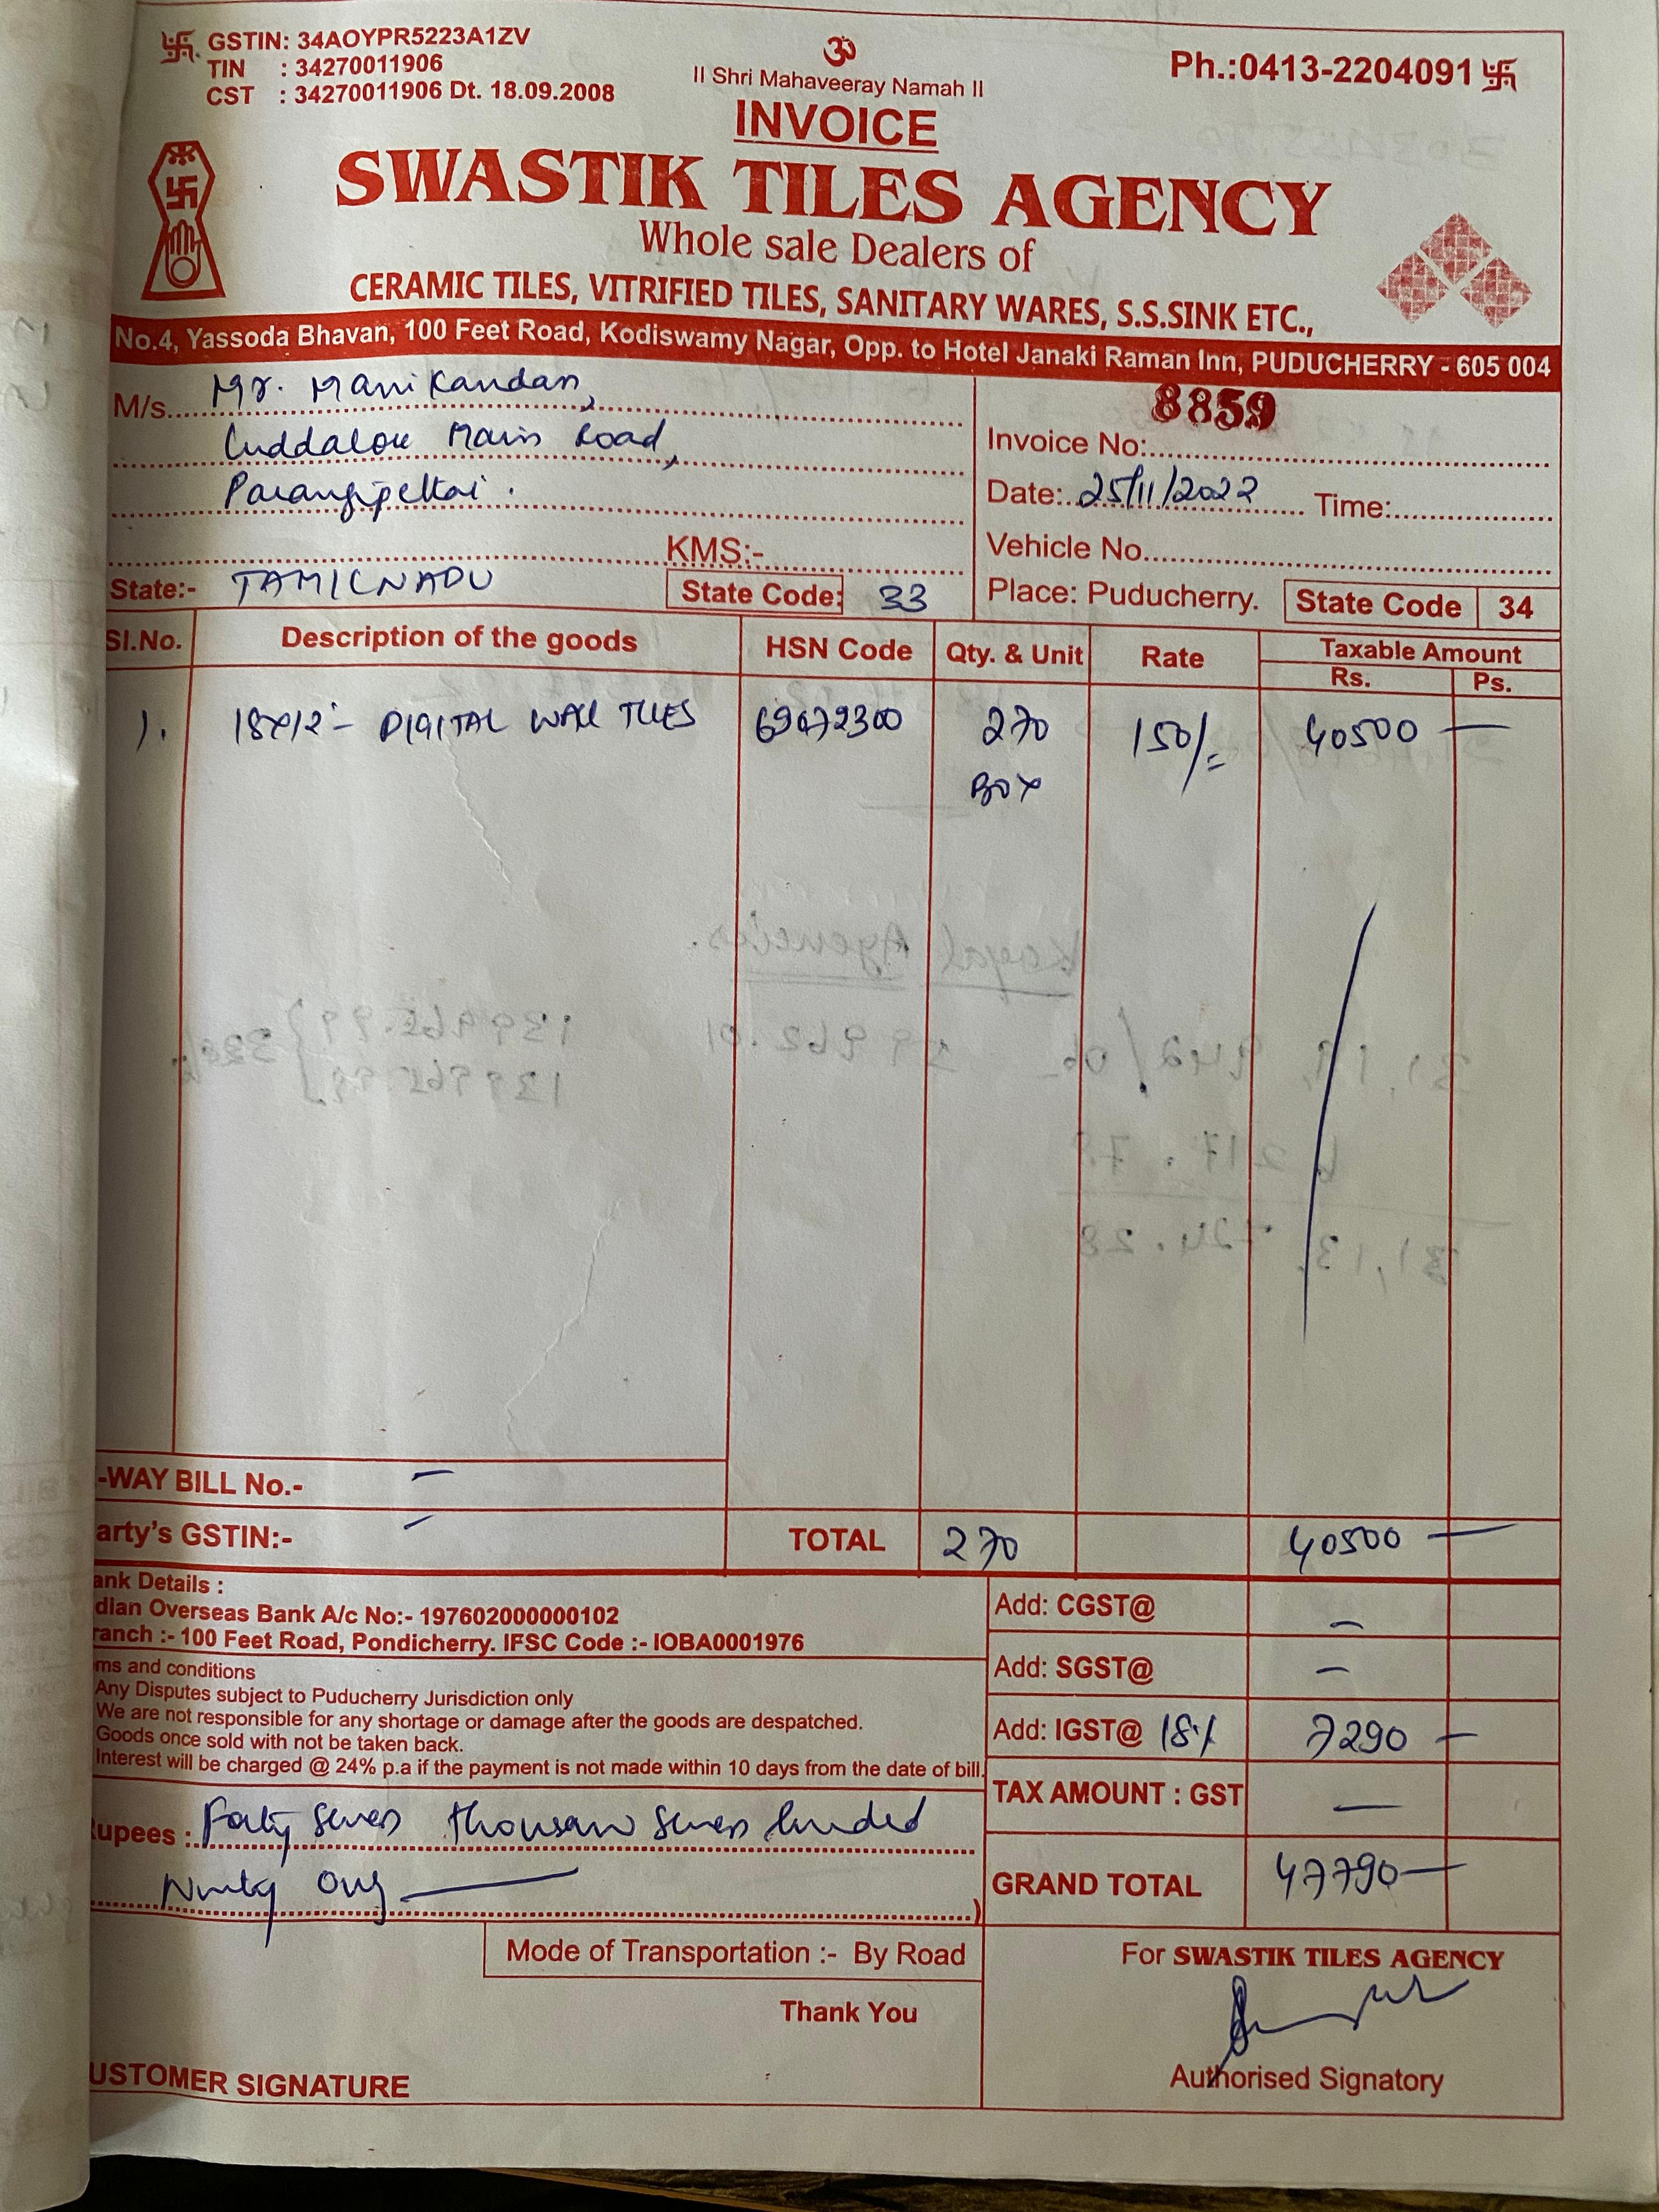 GSTIN: 34AOYPR5223A1ZV
TIN : 34270011906
CST : 34270011906 Dt. 18.09.2008
ॐ
II Shri Mahaveeray Namah II
Ph.:0413-2204091
INVOICE
SWASTIK TILES AGENCY
Whole sale Dealers of
CERAMIC TILES, VITRIFIED TILES, SANITARY WARES, S.S.SINK ETC.,
No.4, Yassoda Bhavan, 100 Feet Road, Kodiswamy Nagar, Opp. to Hotel Janaki Raman Inn, PUDUCHERRY - 605 004
M/s. Mr. Manikandan,
Cuddalore Main Road,
Parangipettai.
KMS:-
State:- TAMILNADU State Code: 33
8859
Invoice No:
Date: 25/11/2022 Time:
Vehicle No.
Place: Puducherry. State Code 34
Sl.No. Description of the goods HSN Code Qty. & Unit Rate Taxable Amount
Rs. Ps.
1). 18x12 - DIGITAL WALL TILES 69072300 270 150/= 40500 —
BOX
-WAY BILL No.- —
arty's GSTIN:- — TOTAL 270 40500 —
ank Details :
dian Overseas Bank A/c No:- 197602000000102
ranch :- 100 Feet Road, Pondicherry. IFSC Code :- IOBA0001976
ms and conditions
Any Disputes subject to Puducherry Jurisdiction only
We are not responsible for any shortage or damage after the goods are despatched.
Goods once sold with not be taken back.
Interest will be charged @ 24% p.a if the payment is not made within 10 days from the date of bill.
Add: CGST@ —
Add: SGST@ —
Add: IGST@ 18% 7290 —
TAX AMOUNT : GST —
GRAND TOTAL 47790 —
upees : Forty Seven thousand Seven hundred
Ninety Only —
)
Mode of Transportation :- By Road
Thank You
USTOMER SIGNATURE
For SWASTIK TILES AGENCY
Authorised Signatory